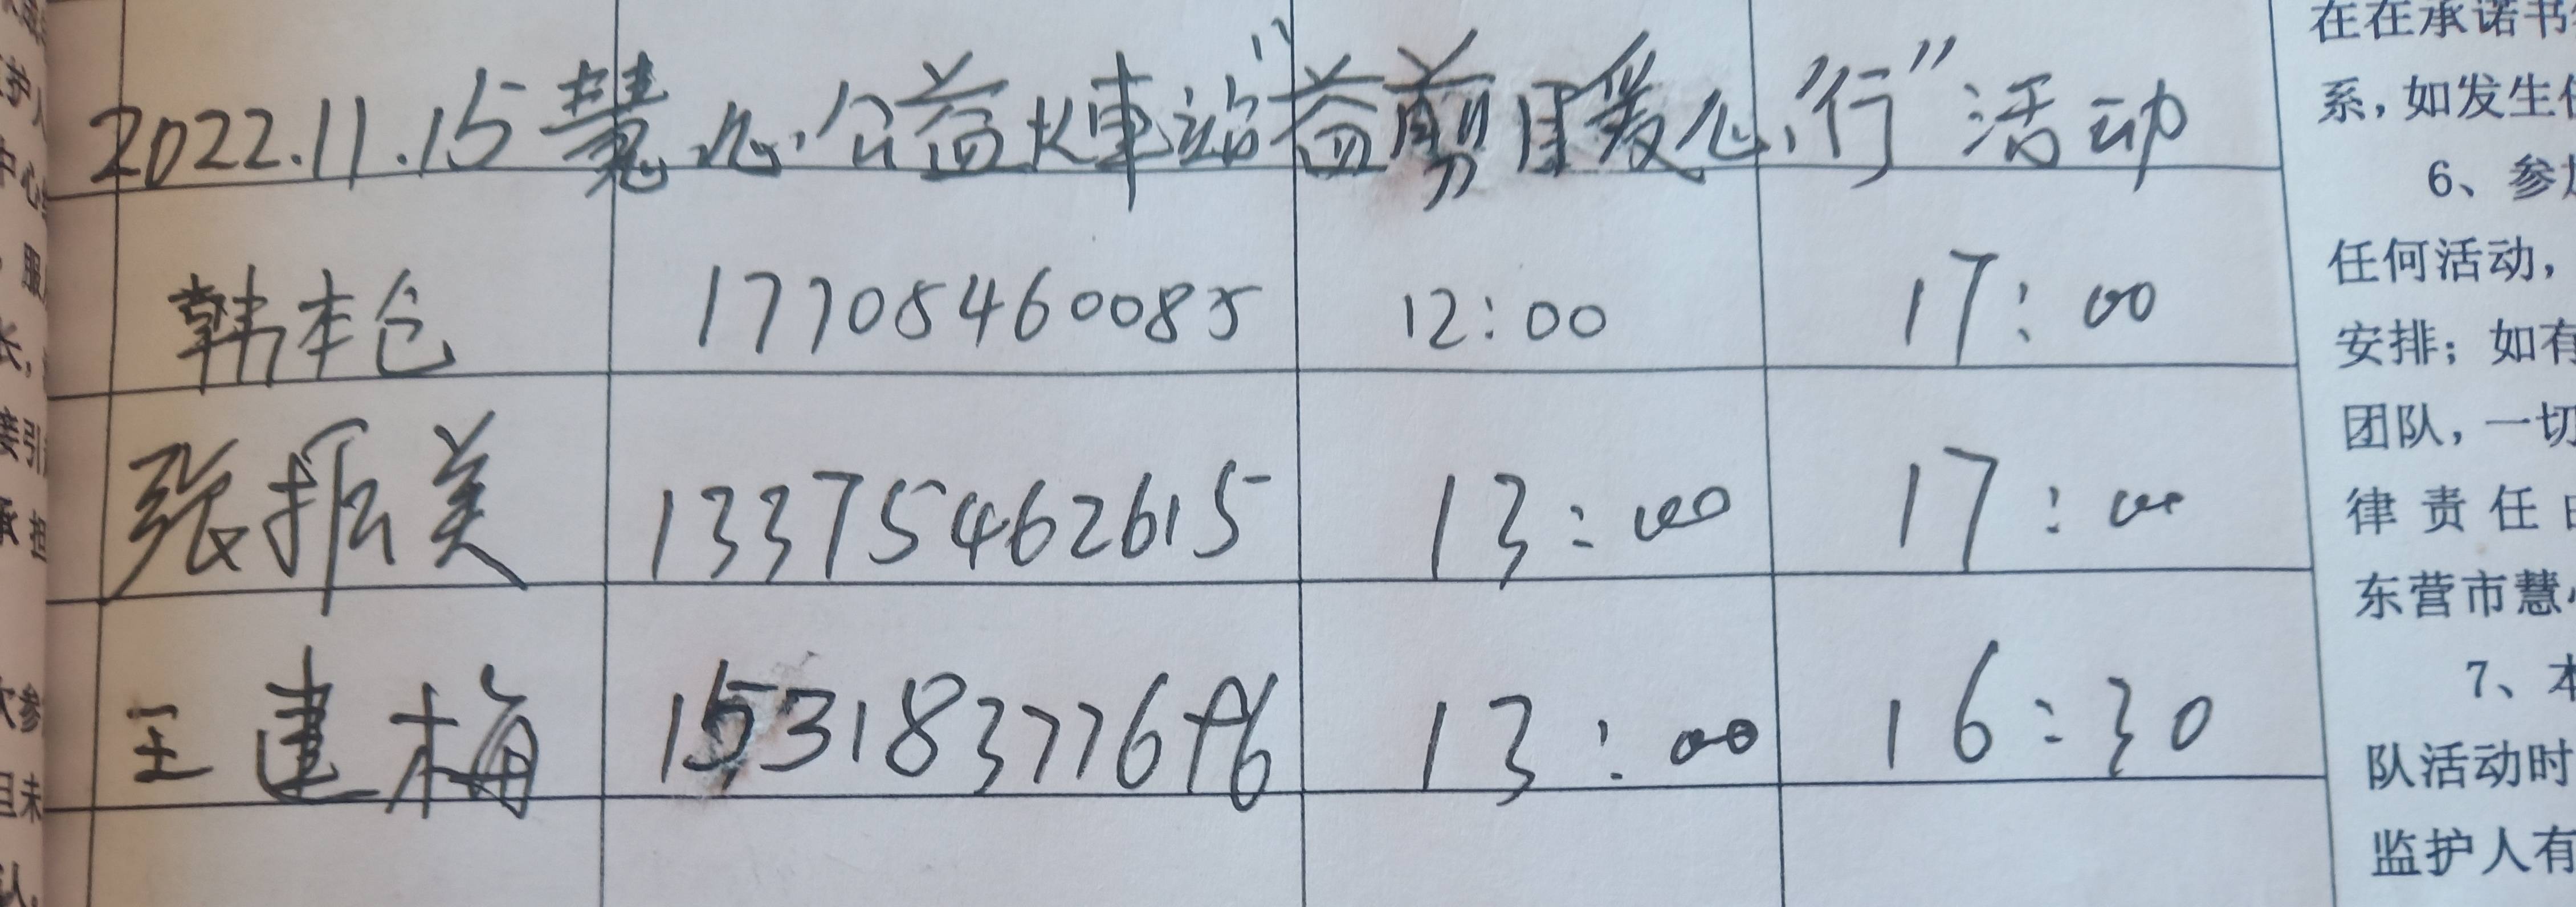 2022.11.15 慧心公益火車站"益剪月爱心"行"活动
韩本仓 17705460085 12:00 17:00
张振美 13375462615 13:00 17:00
王建梅 13:00 16:30
在在承诺书
系，如发生
6、参
任何活动，
安排；如有
团队，一切
律责任
东营市慧
7、本
队活动时
监护人有